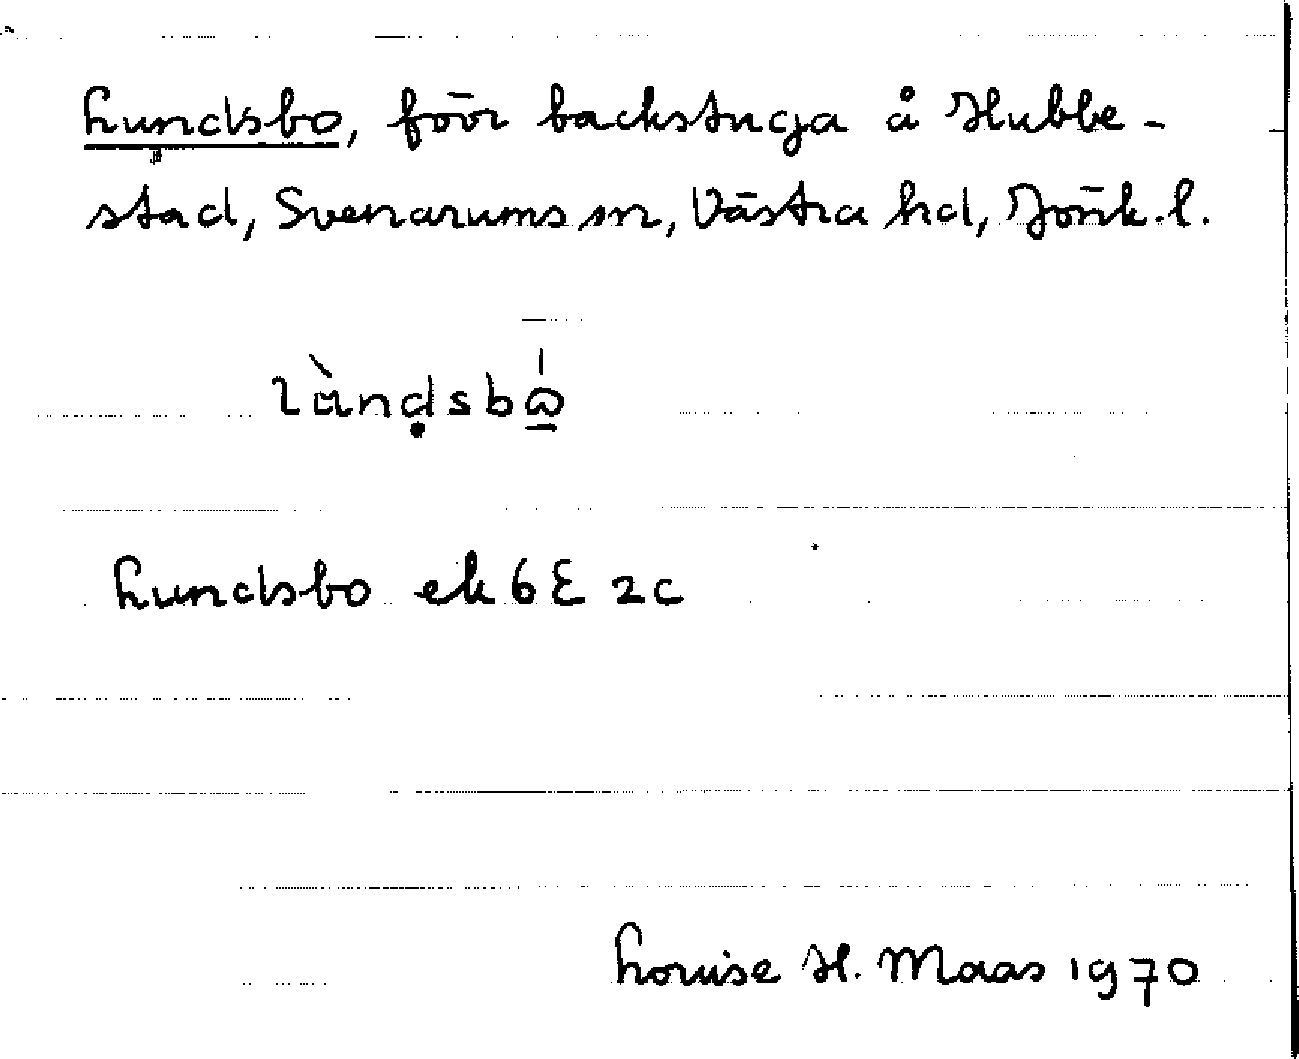 Lundsbo, förr backstuga å Hubbe-
stad, Svenarums sn, Västra hd, Jönk. l.
Lundsbo ek 6 E 2c
Louise H. Maas 1970